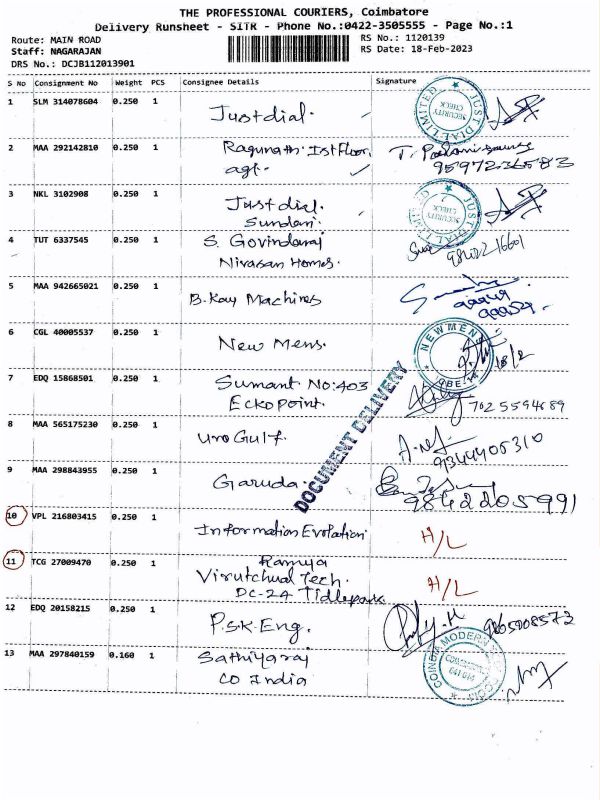 THE PROFESSIONAL COURIERS, Coimbatore
Delivery Runsheet - SITR - Phone No.:0422-3505555 - Page No.:1
Route: MAIN ROAD
RS No.: 1120139
Staff: NAGARAJAN
RS Date: 18-Feb-2023
DRS No.: DCJB112013901
S No Consignment No Weight PCS Consignee Details Signature
1 SLM 314078604 0.250 1 Justdial.
JUST DIAL LIMITED SECURITY CHECK
2 MAA 292142810 0.250 1 Ragunath. Ist Floor,
agt.
9597236583
3 NKL 3102908 0.250 1 Justdial.
Sundari.
JUST DIAL LIMITED SECURITY CHECK
4 TUT 6337545 0.250 1 S. Govindaraj
Nivasan Homes.
5 MAA 942665021 0.250 1 B.Kay Machines
6 CGL 40005537 0.250 1 New Mens.
NEWMEN
7 EDQ 15868501 0.250 1 Sumant No:403
Eckopoint.
7025594689
DOCUMENT DELIVERY
8 MAA 565175230 0.250 1 uroGulf.
9344405310
9 MAA 298843955 0.250 1 Garuda.
9842205991
10 VPL 216803415 0.250 1 Information Evolation
H/L
11 TCG 27009470 0.250 1 Ramya
Virutchual Tech.
DC-24 Tidlepark
H/L
12 EDQ 20158215 0.250 1 P.S.K.Eng.
9865008573
13 MAA 297840159 0.160 1 Sathiyaraj
CO India
COINDIA MODERN
COIMBATORE
641 014